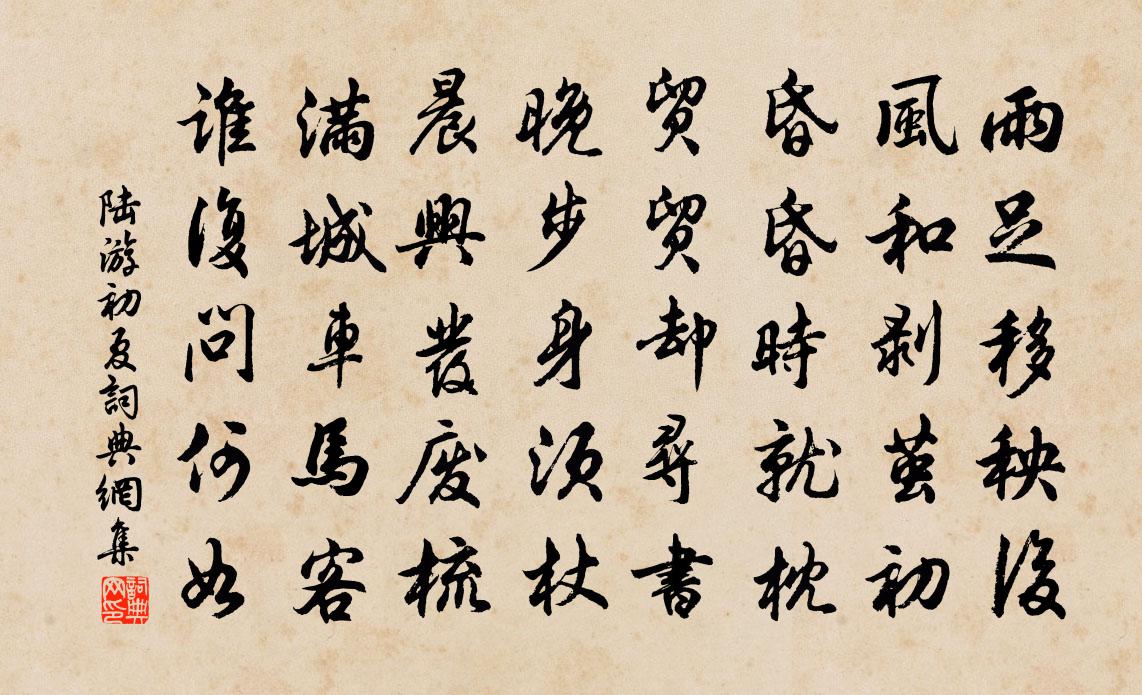 雨足移秧後
風和剝茧初
昏昏時就枕
貿貿却尋書
晚步身須杖
晨興髮廢梳
滿城車馬客
誰復問何如
陸游初夏詞典網集
詞典网印